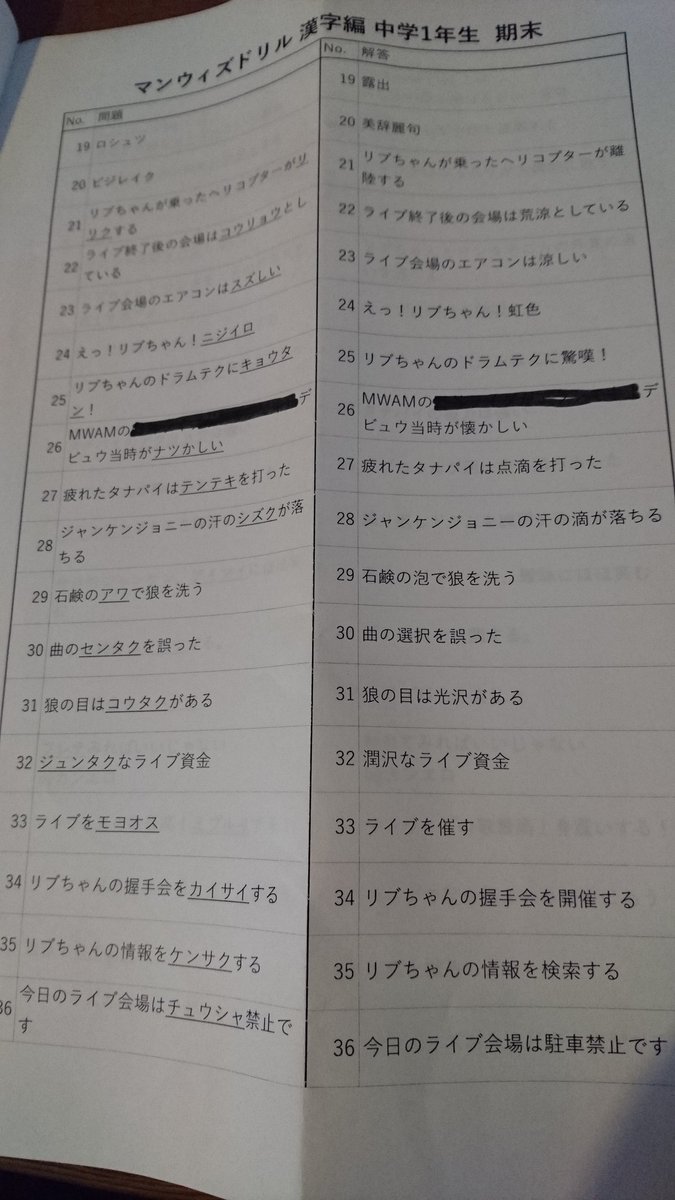 マンウィズドリル 漢字編 中学1年生 期末
No. 問題
19 ロシュツ
20 ビジレイク
21 リブちゃんが乗ったヘリコプターがリ
リクする
22 ライブ終了後の会場はコウリョウとし
ている
23 ライブ会場のエアコンはスズしい
24 えっ！リブちゃん！ニジイロ
25 リブちゃんのドラムテクにキョウタ
ン！
26 MWAMの デ
ビュウ当時がナツかしい
27 疲れたタナパイはテンテキを打った
28 ジャンケンジョニーの汗のシズクが落
ちる
29 石鹸のアワで狼を洗う
30 曲のセンタクを誤った
31 狼の目はコウタクがある
32 ジュンタクなライブ資金
33 ライブをモヨオス
34 リブちゃんの握手会をカイサイする
35 リブちゃんの情報をケンサクする
36 今日のライブ会場はチュウシャ禁止で
す
No. 解答
19 露出
20 美辞麗句
21 リブちゃんが乗ったヘリコプターが離
陸する
22 ライブ終了後の会場は荒涼としている
23 ライブ会場のエアコンは涼しい
24 えっ！リブちゃん！虹色
25 リブちゃんのドラムテクに驚嘆！
26 MWAMの デ
ビュウ当時が懐かしい
27 疲れたタナパイは点滴を打った
28 ジャンケンジョニーの汗の滴が落ちる
29 石鹸の泡で狼を洗う
30 曲の選択を誤った
31 狼の目は光沢がある
32 潤沢なライブ資金
33 ライブを催す
34 リブちゃんの握手会を開催する
35 リブちゃんの情報を検索する
36 今日のライブ会場は駐車禁止です